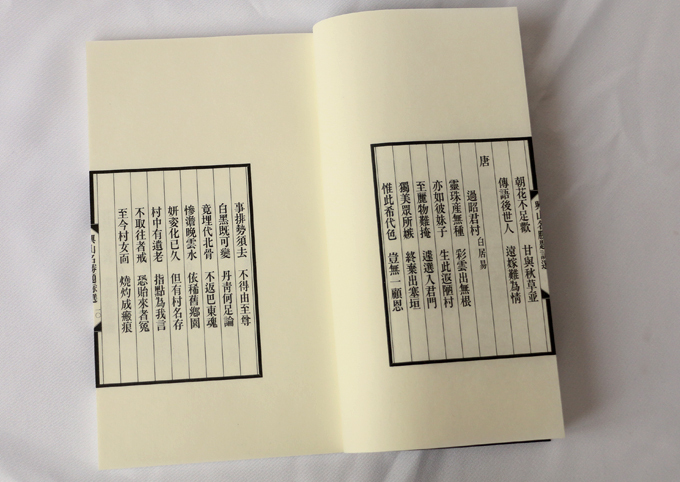 朝花不足歡　甘與秋草並
傳語後世人　遠嫁難為情
唐
過昭君村　白居易
靈珠産無種　彩雲出無根
亦如彼妹子　生此遐陋村
至麗物難掩　遽選入君門
獨美眾所嫉　終棄出塞垣
惟此希代色　豈無一顧恩
事排勢須去　不得由至尊
白黑既可變　丹青何足論
竟埋代北骨　不返巴東魂
慘澹晚雲水　依稀舊鄉園
妍姿化已久　但有村名存
村中有遺老　指點為我言
不取往者戒　恐貽來者冤
至今村女面　燒灼成瘢痕
興山名